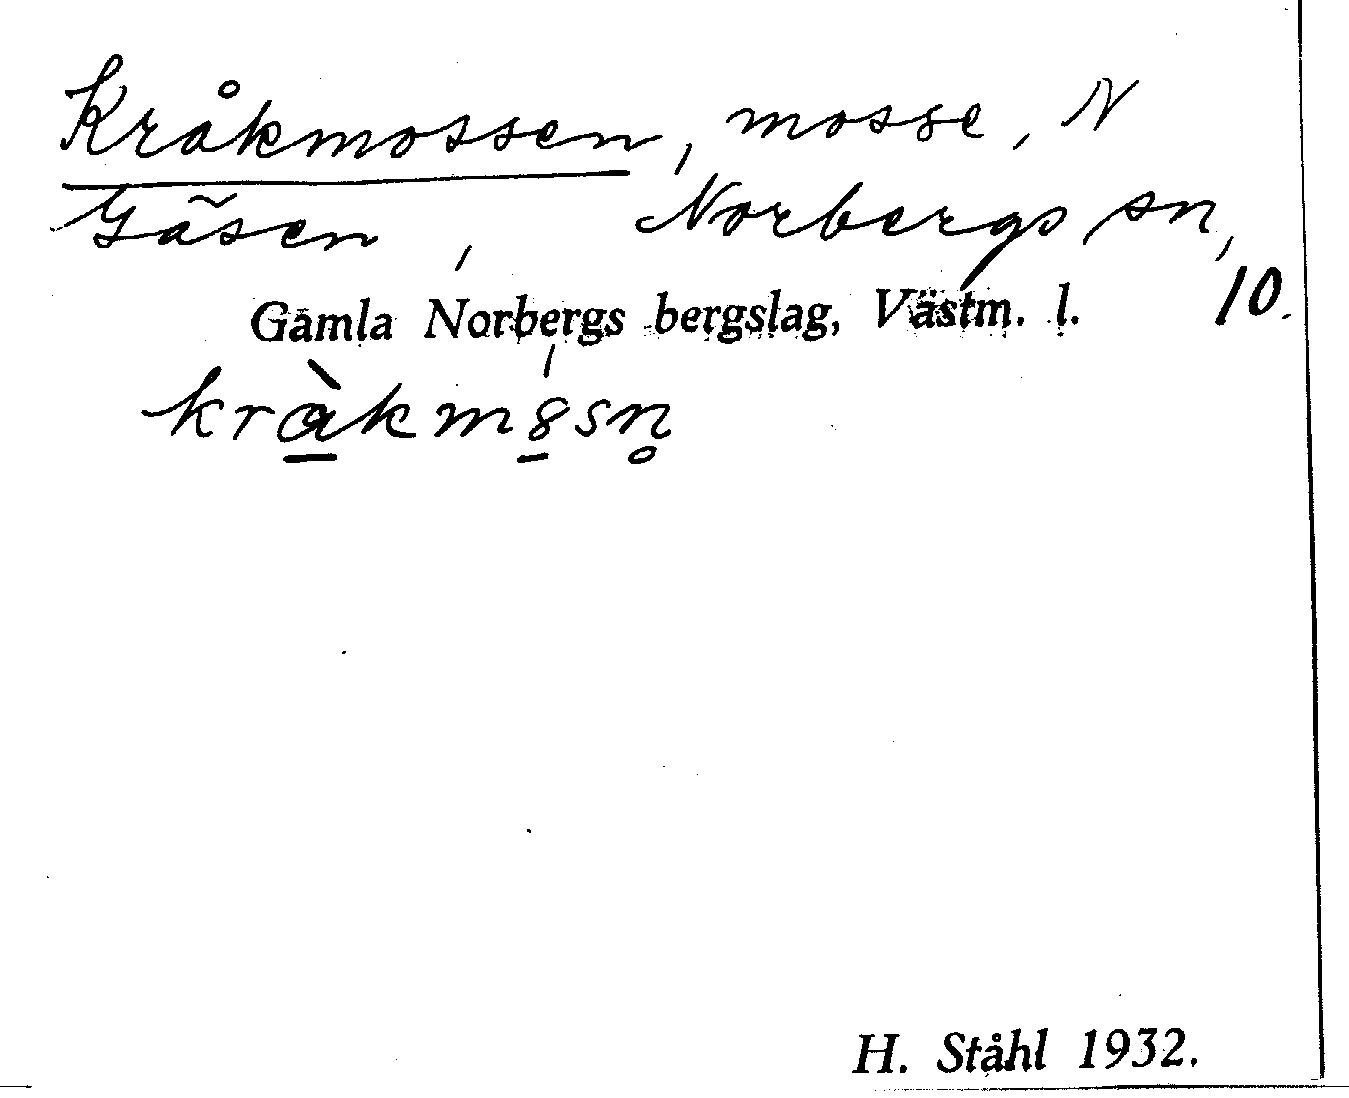 Kråkmossen, mosse, N
Gäsen, Norbergs sn,
Gamla Norbergs bergslag, Västm. l. 10.
kràkm8sn̥
H. Ståhl 1932.